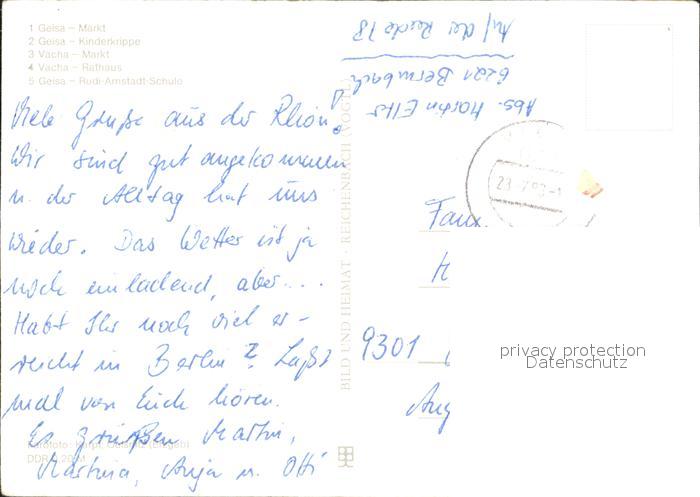 1 Geisa – Markt
2 Geisa – Kinderkrippe
3 Vacha – Markt
4 Vacha – Rathaus
5 Geisa – Rudi-Arnstadt-Schule
Viele Grüße aus der Rhön!
Wir sind gut angekommen
u. der Alltag hat uns
wieder. Das Wetter ist ja
noch einladend, aber....
Habt Ihr noch viel er-
reicht in Berlin? Laßt
mal von Euch hören.
Es grüßen Martin,
Martina, Anja u. Otti
DDR 0,20 M
BILD UND HEIMAT · REICHENBACH (VOGTL)
Abs. Martin
6201 Bermbach
Auf der 18
23.7.
Fam.
H
9301
privacy protection
Datenschutz